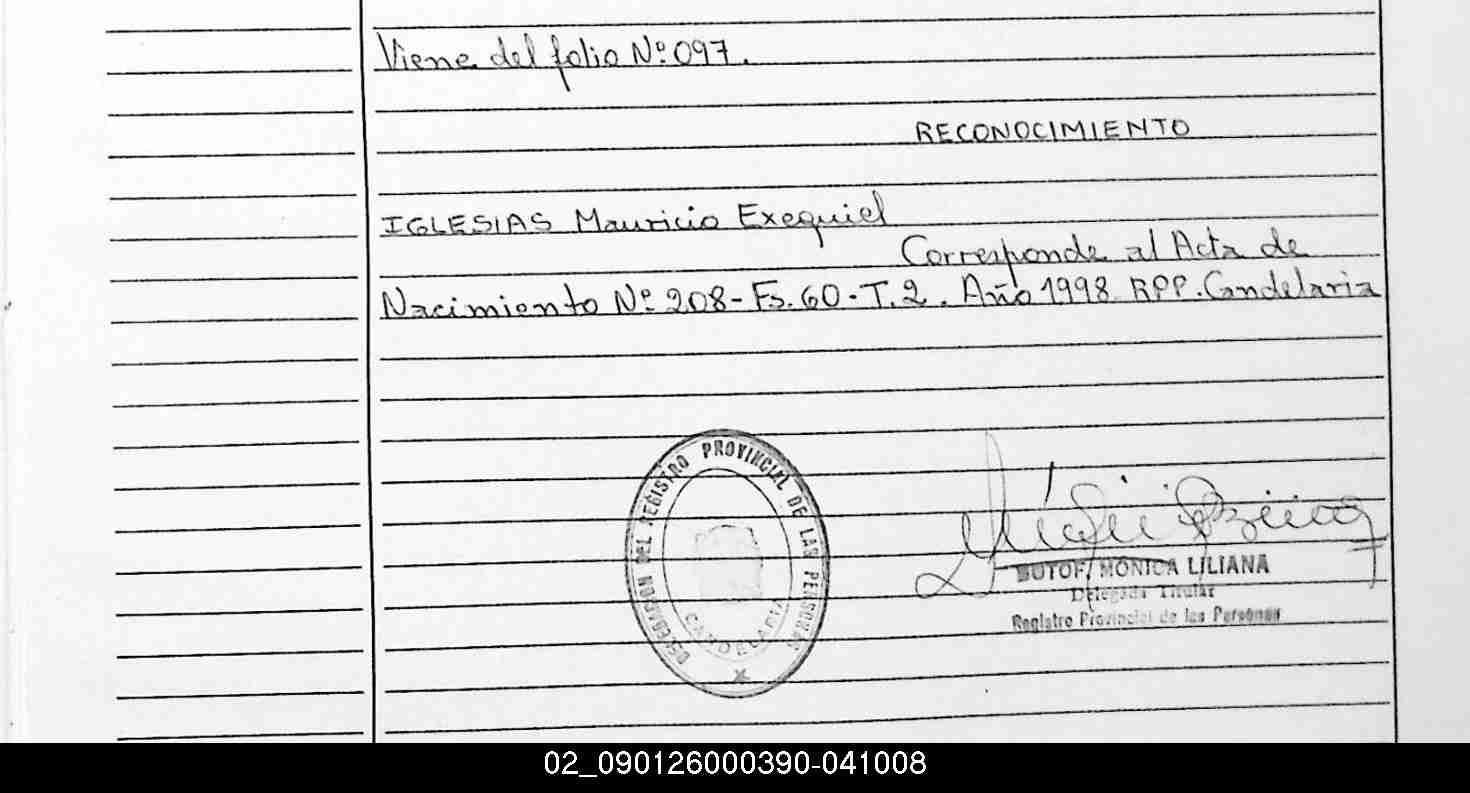 Viene del folio Nº 097.
RECONOCIMIENTO
IGLESIAS Mauricio Exequiel
Corresponde al Acta de
Nacimiento Nº 208 - Fs. 60 - T. 2. Año 1998. RPP. Candelaria
DELEGACION DEL REGISTRO PROVINCIAL DE LAS PERSONAS
CANDELARIA
MONICA LILIANA
Delegada Titular
Registro Provincial de las Personas
02_090126000390-041008